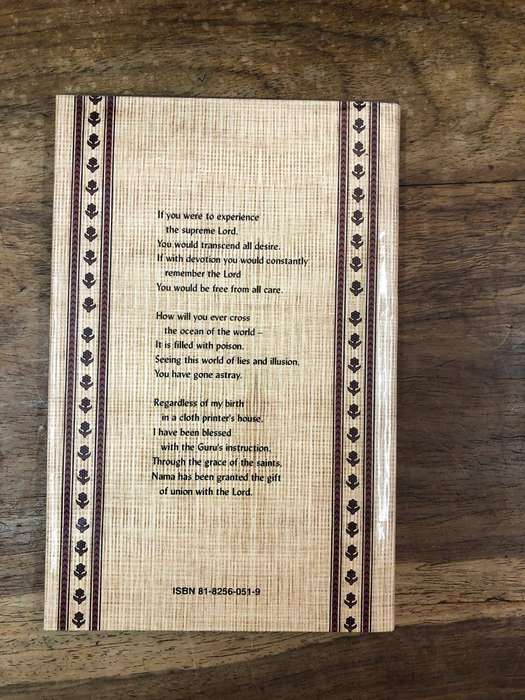 If you were to experience
the supreme Lord.
You would transcend all desire.
If with devotion you would constantly
remember the Lord
You would be free from all care.
How will you ever cross
the ocean of the world –
It is filled with poison.
Seeing this world of lies and illusion,
You have gone astray.
Regardless of my birth
in a cloth printer's house,
I have been blessed
with the Guru's instruction,
Through the grace of the saints,
Nama has been granted the gift
of union with the Lord.
ISBN 81-8256-051-9